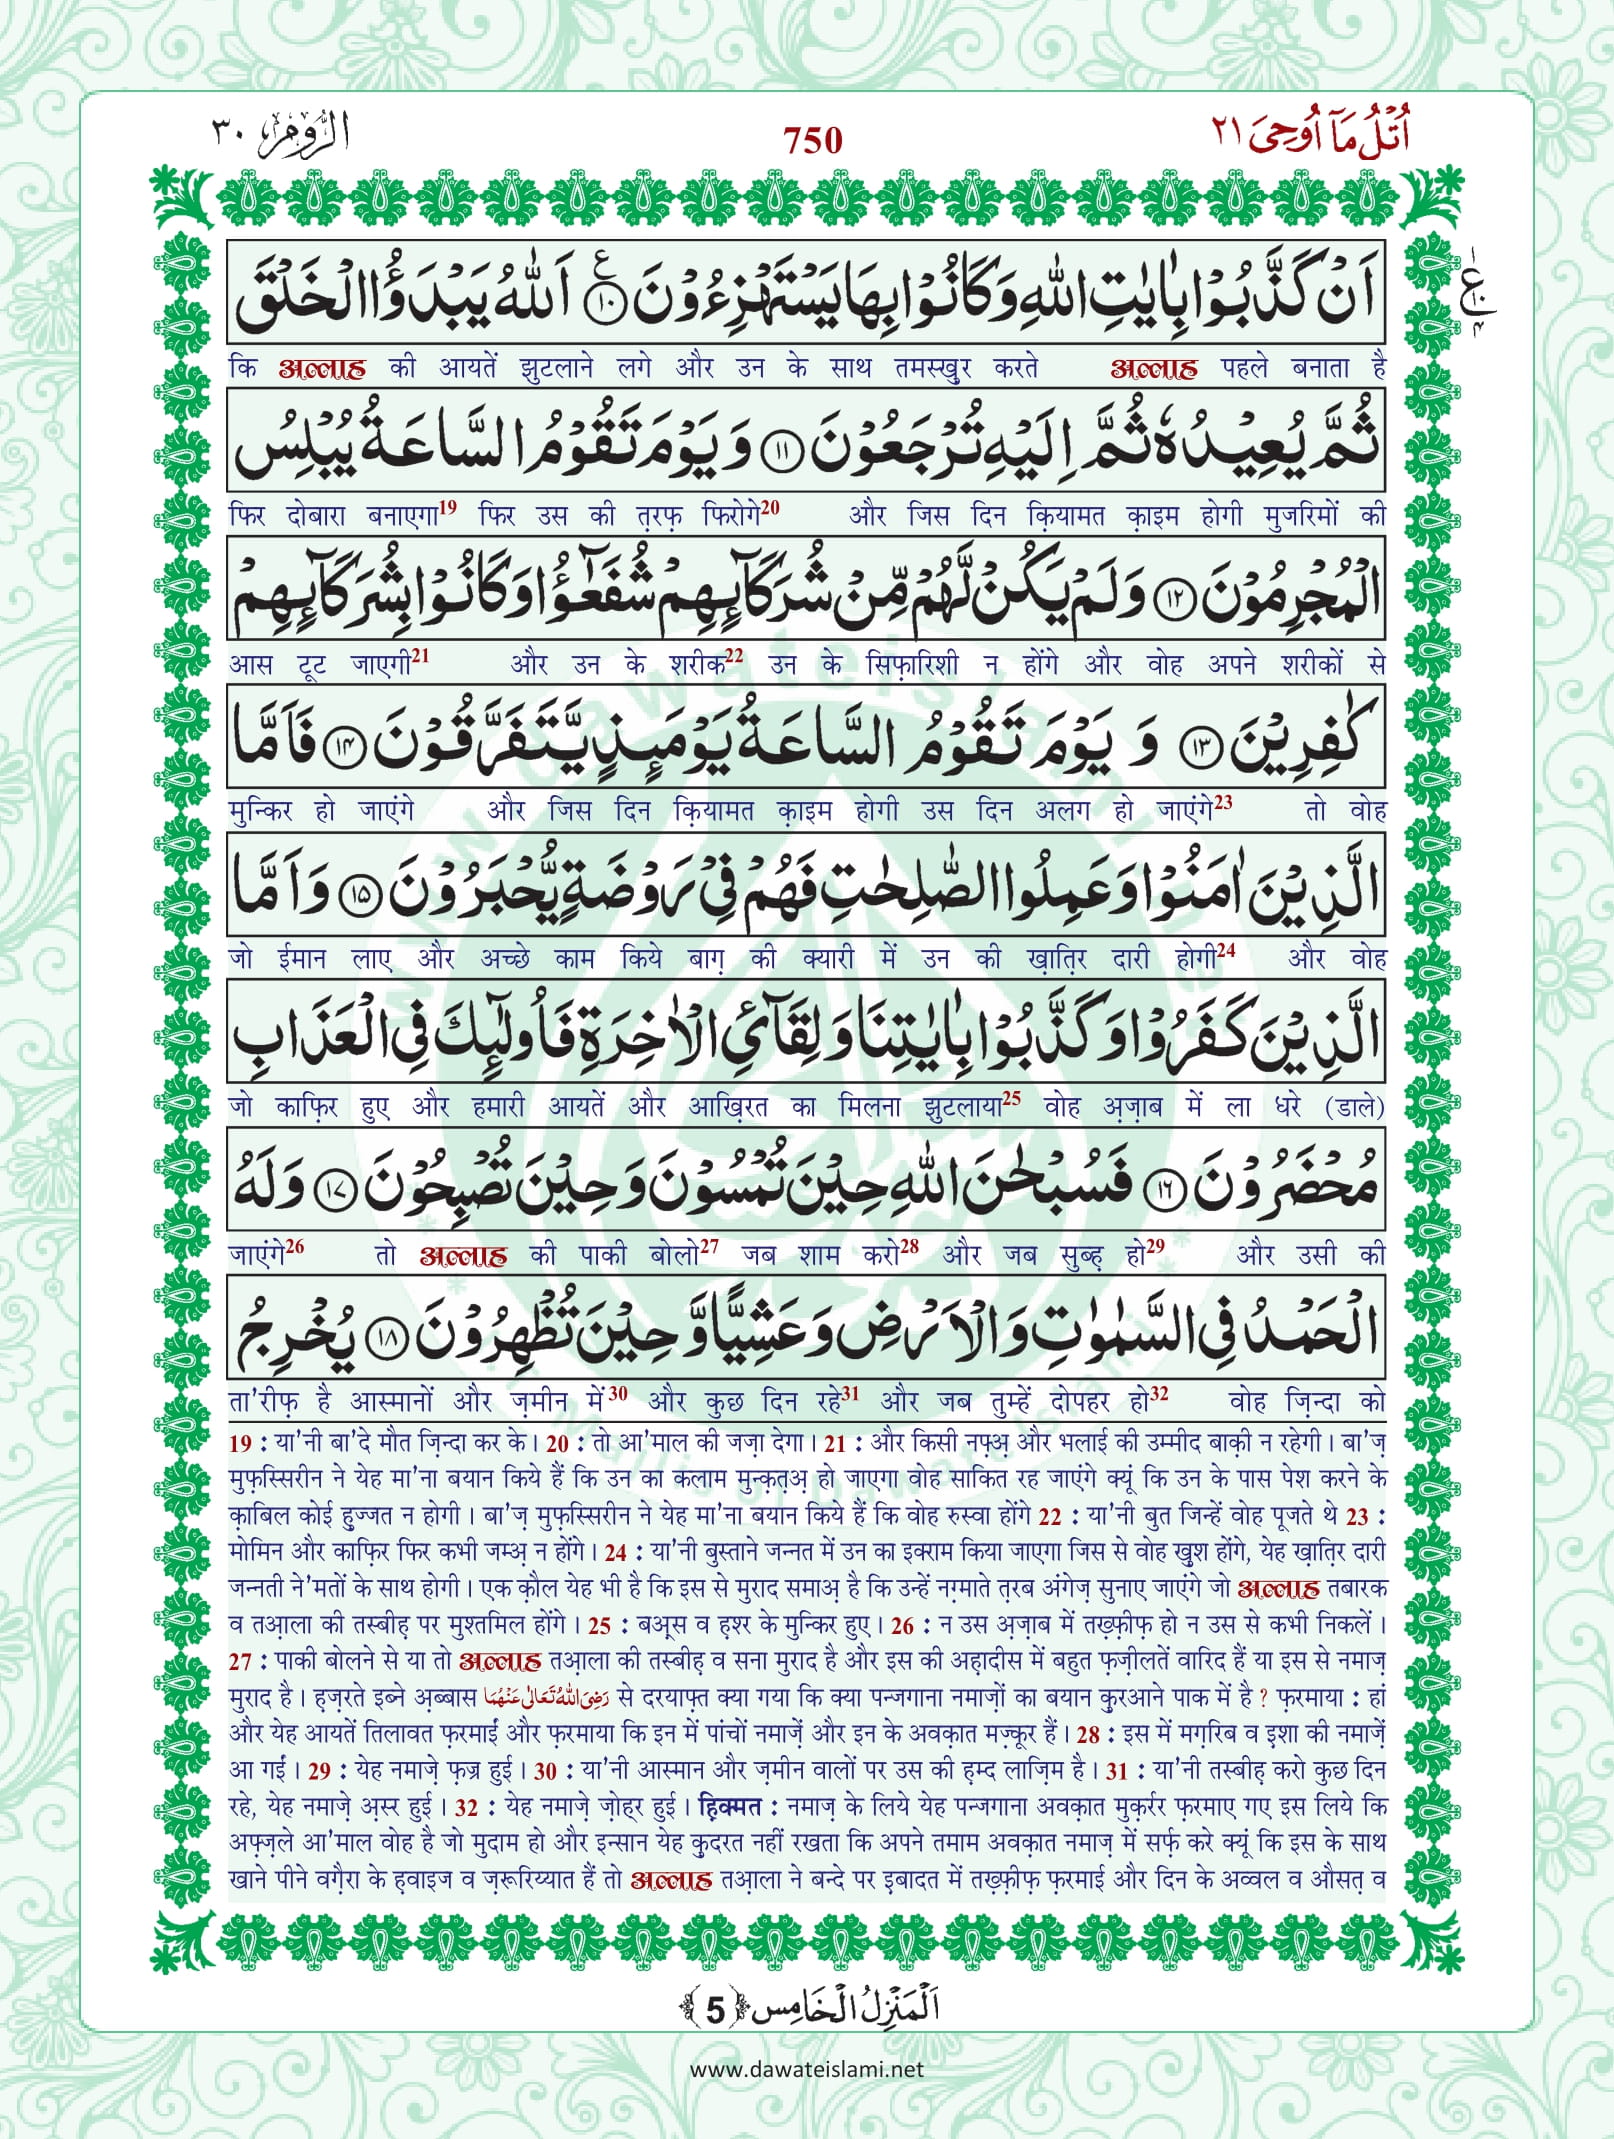 اُتْلُ مَآ اُوْحِیَ ٢١
750
اَلرُّوْم ٣٠
اَنْ كَذَّبُوْا بِاٰیٰتِ اللّٰهِ وَ كَانُوْا بِهَا یَسْتَهْزِءُوْنَ ﴿۱۰﴾ اَللّٰهُ یَبْدَؤُا الْخَلْقَ
कि अल्लाह की आयतें झुटलाने लगे और उन के साथ तमस्ख़ुर करते अल्लाह पहले बनाता है
ثُمَّ یُعِیْدُهٗ ثُمَّ اِلَیْهِ تُرْجَعُوْنَ ﴿۱۱﴾ وَ یَوْمَ تَقُوْمُ السَّاعَةُ یُبْلِسُ
फिर दोबारा बनाएगा19 फिर उस की त़रफ़ फिरोगे20 और जिस दिन क़ियामत क़ाइम होगी मुजरिमों की
الْمُجْرِمُوْنَ ﴿۱۲﴾ وَ لَمْ یَكُنْ لَّهُمْ مِّنْ شُرَكَآئِهِمْ شُفَعٰٓؤُا وَ كَانُوْا بِشُرَكَآئِهِمْ
आस टूट जाएगी21 और उन के शरीक22 उन के सिफ़ारिशी न होंगे और वोह अपने शरीकों से
كٰفِرِیْنَ ﴿۱۳﴾ وَ یَوْمَ تَقُوْمُ السَّاعَةُ یَوْمَئِذٍ یَّتَفَرَّقُوْنَ ﴿۱۴﴾ فَاَمَّا
मुन्किर हो जाएंगे और जिस दिन क़ियामत क़ाइम होगी उस दिन अलग हो जाएंगे23 तो वोह
الَّذِیْنَ اٰمَنُوْا وَ عَمِلُوا الصّٰلِحٰتِ فَهُمْ فِیْ رَوْضَةٍ یُّحْبَرُوْنَ ﴿۱۵﴾ وَ اَمَّا
जो ईमान लाए और अच्छे काम किये बाग़ की क्यारी में उन की ख़ात़िर दारी होगी24 और वोह
الَّذِیْنَ كَفَرُوْا وَ كَذَّبُوْا بِاٰیٰتِنَا وَ لِقَآئِ الْاٰخِرَةِ فَاُولٰٓئِكَ فِی الْعَذَابِ
जो काफ़िर हुए और हमारी आयतें और आख़िरत का मिलना झुटलाया25 वोह अ़ज़ाब में ला धरे (डाले)
مُحْضَرُوْنَ ﴿۱۶﴾ فَسُبْحٰنَ اللّٰهِ حِیْنَ تُمْسُوْنَ وَ حِیْنَ تُصْبِحُوْنَ ﴿۱۷﴾ وَ لَهُ
जाएंगे26 तो अल्लाह की पाकी बोलो27 जब शाम करो28 और जब सुब्ह़ हो29 और उसी की
الْحَمْدُ فِی السَّمٰوٰتِ وَ الْاَرْضِ وَ عَشِیًّا وَّ حِیْنَ تُظْهِرُوْنَ ﴿۱۸﴾ یُخْرِجُ
ता'रीफ़ है आस्मानों और ज़मीन में30 और कुछ दिन रहे31 और जब तुम्हें दोपहर हो32 वोह ज़िन्दा को
19 : या'नी बा'दे मौत ज़िन्दा कर के। 20 : तो आ'माल की जज़ा देगा। 21 : और किसी नफ़्अ़ और भलाई की उम्मीद बाक़ी न रहेगी। बा'ज़
मुफ़स्सिरीन ने येह मा'ना बयान किये हैं कि उन का कलाम मुन्क़त़अ़ हो जाएगा वोह साकित रह जाएंगे क्यूं कि उन के पास पेश करने के
क़ाबिल कोई हु़ज्जत न होगी। बा'ज़ मुफ़स्सिरीन ने येह मा'ना बयान किये हैं कि वोह रुस्वा होंगे 22 : या'नी बुत जिन्हें वोह पूजते थे 23 :
मोमिन और काफ़िर फिर कभी जम्अ़ न होंगे। 24 : या'नी बुस्ताने जन्नत में उन का इक्राम किया जाएगा जिस से वोह ख़ुश होंगे, येह ख़ात़िर दारी
जन्नती ने'मतों के साथ होगी। एक क़ौल येह भी है कि इस से मुराद समाअ़ है कि उन्हें नग़्माते त़रब अंगेज़ सुनाए जाएंगे जो अल्लाह तबारक
व तआ़ला की तस्बीह़ पर मुश्तमिल होंगे। 25 : बअ़्स व ह़श्र के मुन्किर हुए। 26 : न उस अ़ज़ाब में तख़्फ़ीफ़ हो न उस से कभी निकलें।
27 : पाकी बोलने से या तो अल्लाह तआ़ला की तस्बीह़ व सना मुराद है और इस की अह़ादीस में बहुत फ़ज़ीलतें वारिद हैं या इस से नमाज़
मुराद है। ह़ज़रते इब्ने अ़ब्बास رَضِیَ اللهُ تَعَالٰی عَنْهُمَا से दरयाफ़्त क्या गया कि क्या पन्जगाना नमाज़ों का बयान क़ुरआने पाक में है ? फ़रमाया : हां
और येह आयतें तिलावत फ़रमाईं और फ़रमाया कि इन में पांचों नमाज़ें और इन के अवक़ात मज़्कूर हैं। 28 : इस में मग़रिब व इशा की नमाज़ें
आ गईं। 29 : येह नमाज़े फ़ज्र हुई। 30 : या'नी आस्मान और ज़मीन वालों पर उस की ह़म्द लाज़िम है। 31 : या'नी तस्बीह़ करो कुछ दिन
रहे, येह नमाज़े अ़स्र हुई। 32 : येह नमाज़े ज़ोह्र हुई। ह़िक्मत : नमाज़ के लिये येह पन्जगाना अवक़ात मुक़र्रर फ़रमाए गए इस लिये कि
अफ़्ज़ले आ'माल वोह है जो मुदाम हो और इन्सान येह क़ुदरत नहीं रखता कि अपने तमाम अवक़ात नमाज़ में सर्फ़ करे क्यूं कि इस के साथ
खाने पीने वग़ैरा के ह़वाइज व ज़रूरिय्यात हैं तो अल्लाह तआ़ला ने बन्दे पर इ़बादत में तख़्फ़ीफ़ फ़रमाई और दिन के अव्वल व औसत़ व
اَلْمَنْزِلُ الْخَامِس ﴿5﴾
www.dawateislami.net